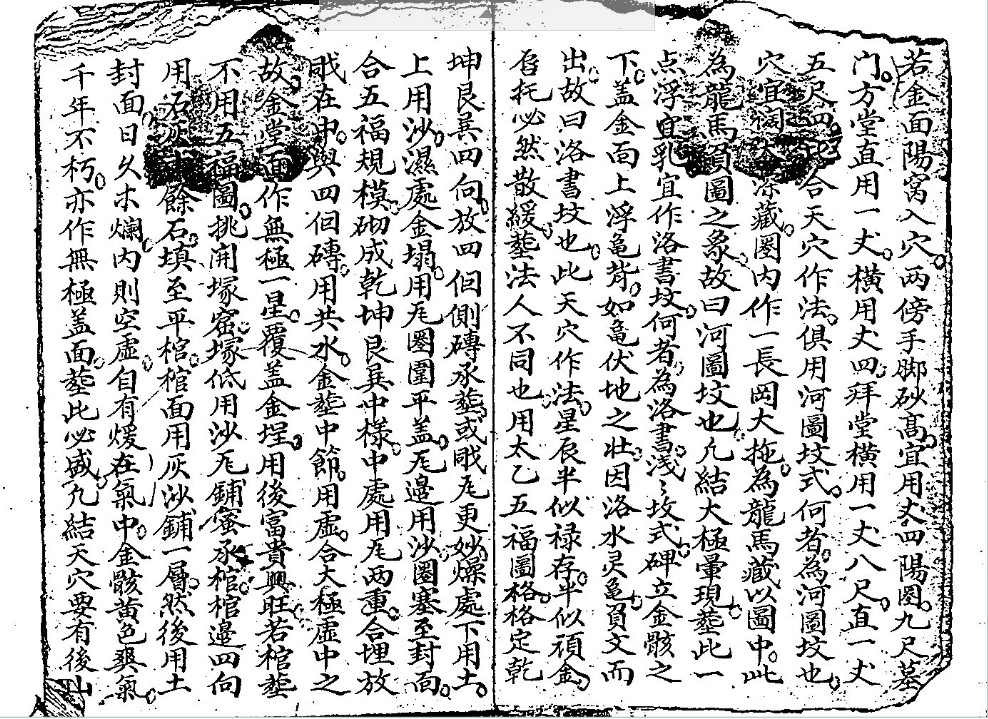 若金面陽窩入穴两傍手脚砂髙宜用丈四陽圈九尺墓
门方堂直用一丈横用丈四拜堂横用一丈八尺直一丈
五尺四合天穴作法俱用河圖坟式何者為河圖坟也
穴宜深藏圈内作一長岡大拖為龍馬藏以圖中此
為龍馬負圖之象故曰河圖坟也凢結大極暈現塟此一
点浮宜乳宜作洛書坟何者為洛書浅〻坟式碑立金骸之
下盖金面上浮龟背如龟伏地之壮因洛水灵龟負文而
出故曰洛書坟也此天穴作法星辰半似禄存半似頑金
启托必然散緩塟法人不同也用太乙五福圖格格定乾
坤艮巽四向放四個側磚承塟或戙瓦更妙燥處下用土
上用沙濕處金塌用瓦圈圍平盖瓦邉用沙圈塞至封面
合五福規模砌成乾坤艮巽中様中處用瓦两重合埋放
戙在中與四個磚用共水金塟中節用虚合大極虚中之
故金堂面作無極一星覆盖金埕用後富貴興旺若棺塟
不用五福圖挑開塚窑塚低用沙瓦鋪蜜承棺棺邉四向
用石灰餘石填至平棺棺面用灰沙鋪一層然後用土
封面日久木爛内則空虚自有煖在氣中金骸黄色巽氣
千年不朽亦作無極盖面塟此必盛凢結天穴要有後山